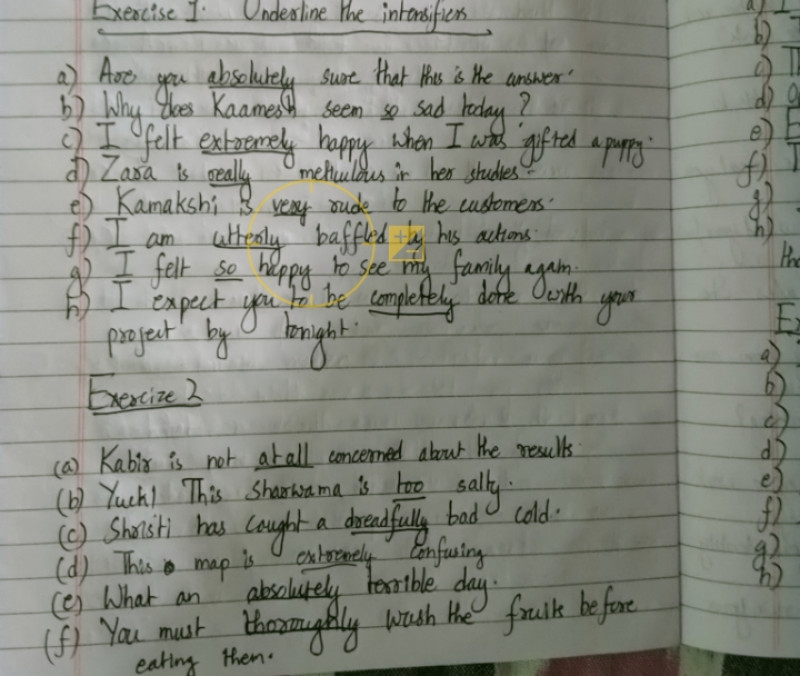 Exercise 1. Underline the intensifiers
a) Are you absolutely sure that this is the answer.
b) Why does Kaamesh seem so sad today?
c) I felt extremely happy when I was gifted a puppy.
d) Zara is really meticulous in her studies.
e) Kamakshi is very rude to the customers.
f) I am utterly baffled by his actions.
g) I felt so happy to see my family again.
h) I expect you to be completely done with your
project by tonight.
Exercize 2
(a) Kabir is not at all concerned about the results.
(b) Yuck! This Sharwama is too salty.
(c) Shristi has caught a dreadfully bad cold.
(d) This map is extremely confusing
(e) What an absolutely terrible day.
(f) You must thoroughly wash the fruits before
eating them.
a)
b)
c)
d)
e)
f)
g)
h)
a)
b)
c)
d)
e)
f)
g)
h)